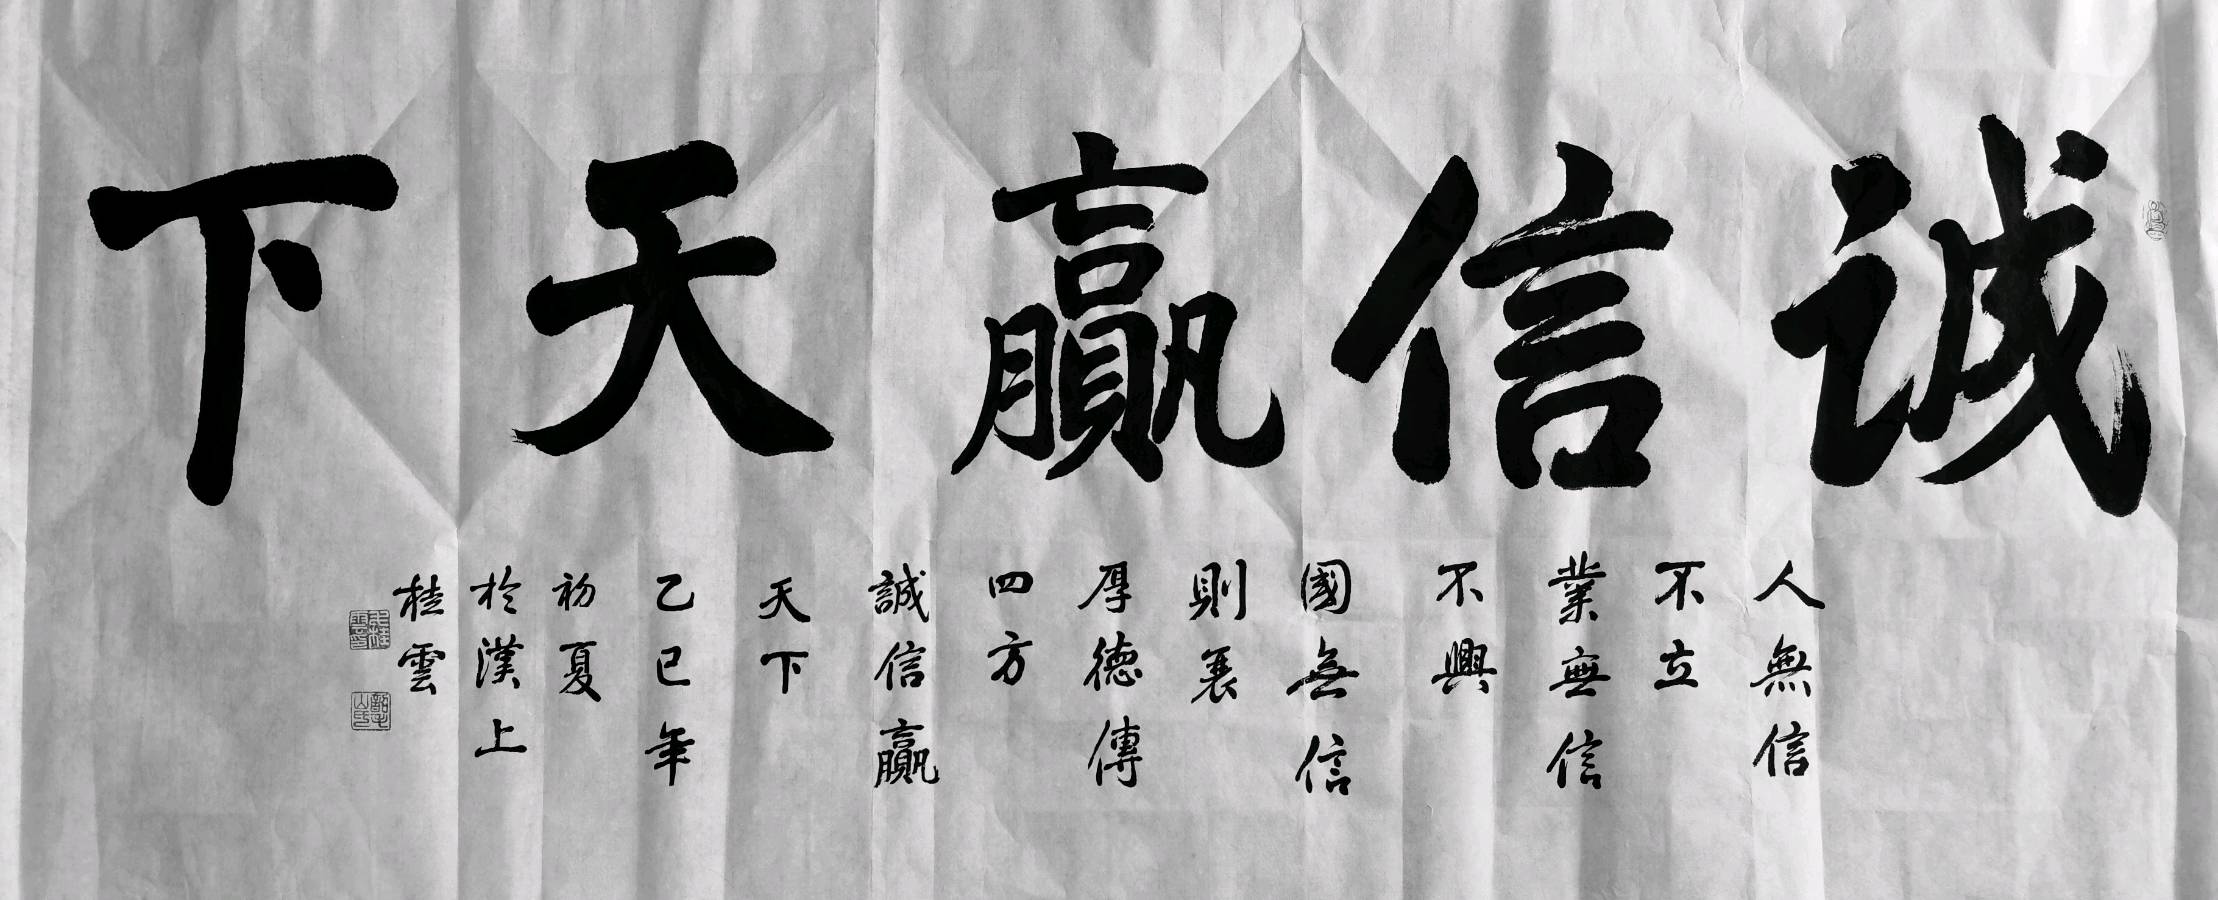 誠信贏天下
人無信
不立
業無信
不興
國無信
則衰
厚德傳
四方
誠信贏
天下
乙巳年
初夏
於漢上
桂雲